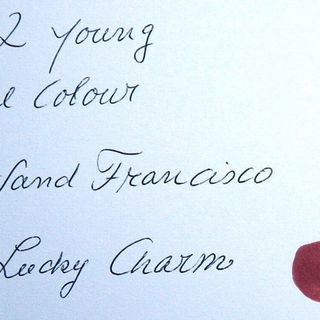 2 Young
l Colour
Sand Francisco
Lucky Charm